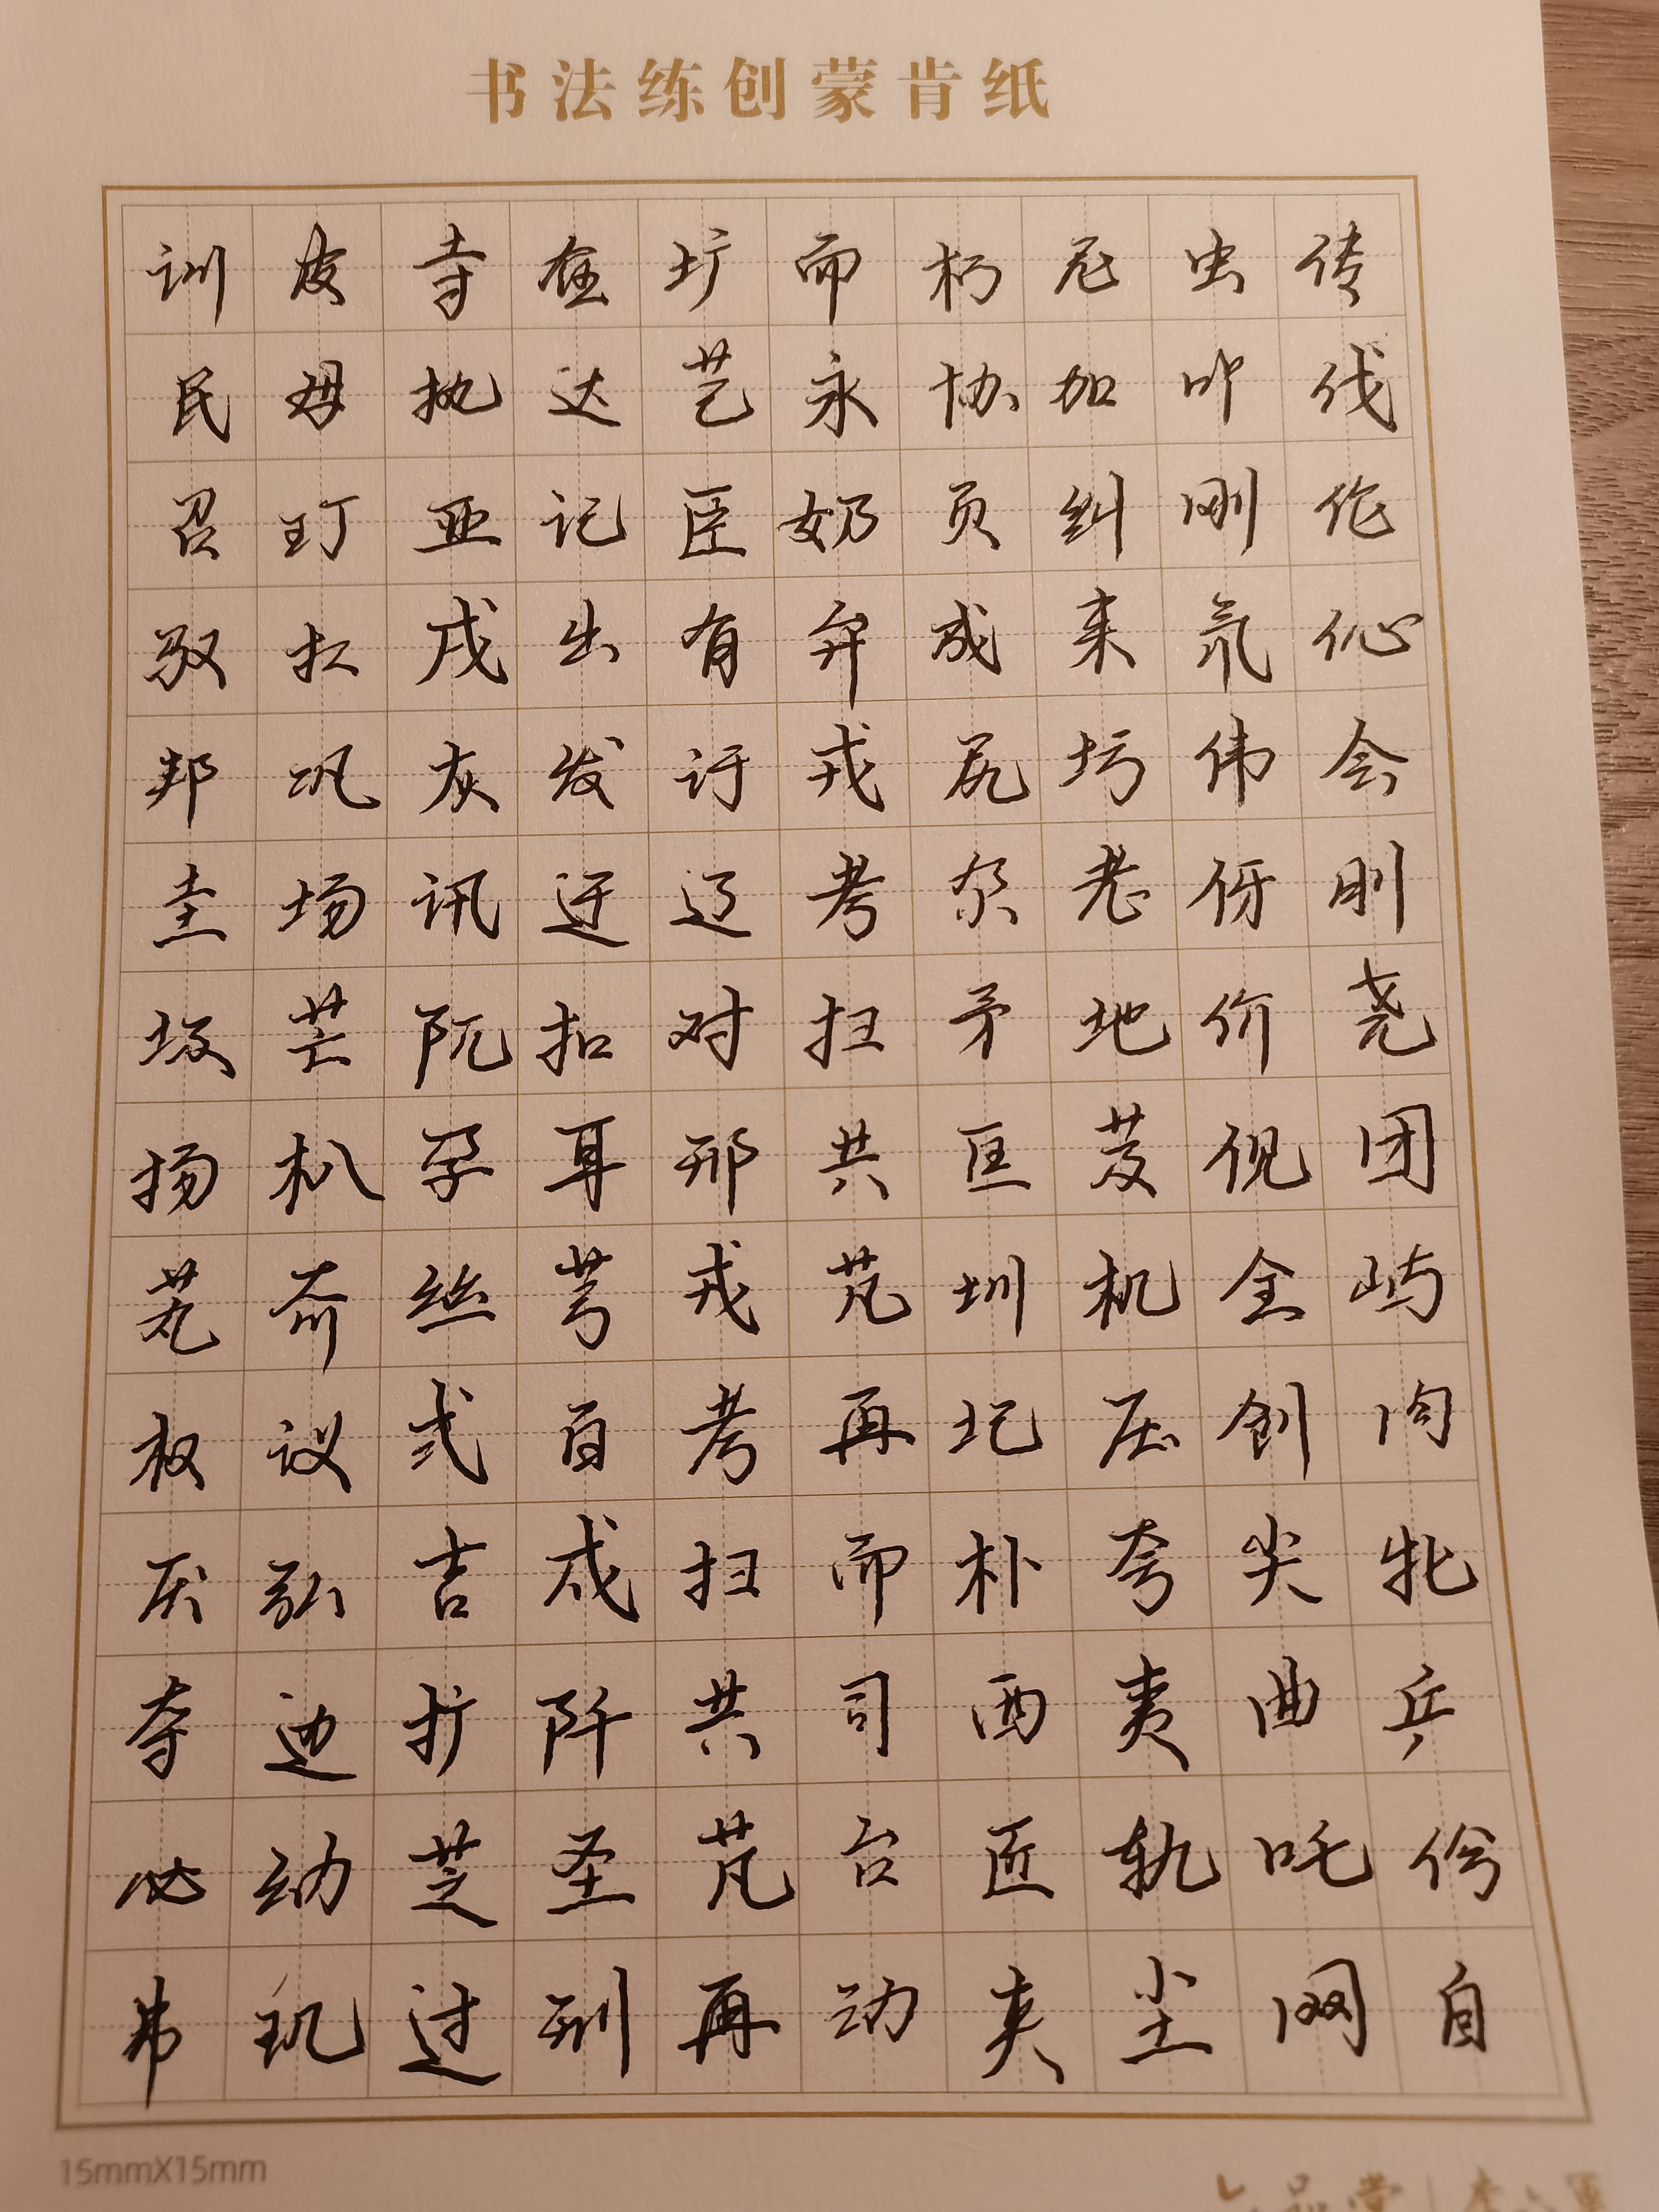 书法练创蒙肯纸
训皮寺在圹而朽尼虫传
民母执达艺永协加叩伐
召玎亚记臣奶页纠刚伦
驭扛戌出有弁成来氘伈
邦巩灰发讦戎尻圬伟会
圭场讯迂辽考尕老伢刖
圾芒阮扣对扫矛地价尧
扬朳孕耳邢共匡芨伣团
芄夼丝芎戎芃圳机全屿
权议式百考再圮压创肉
厌弘吉戍扫而朴夸尖牝
夺迆扩阡共司西夷曲乒
必幼芝圣芃台匠轨吒伱
弗玑过刑再动夹尘网自
15mmX15mm